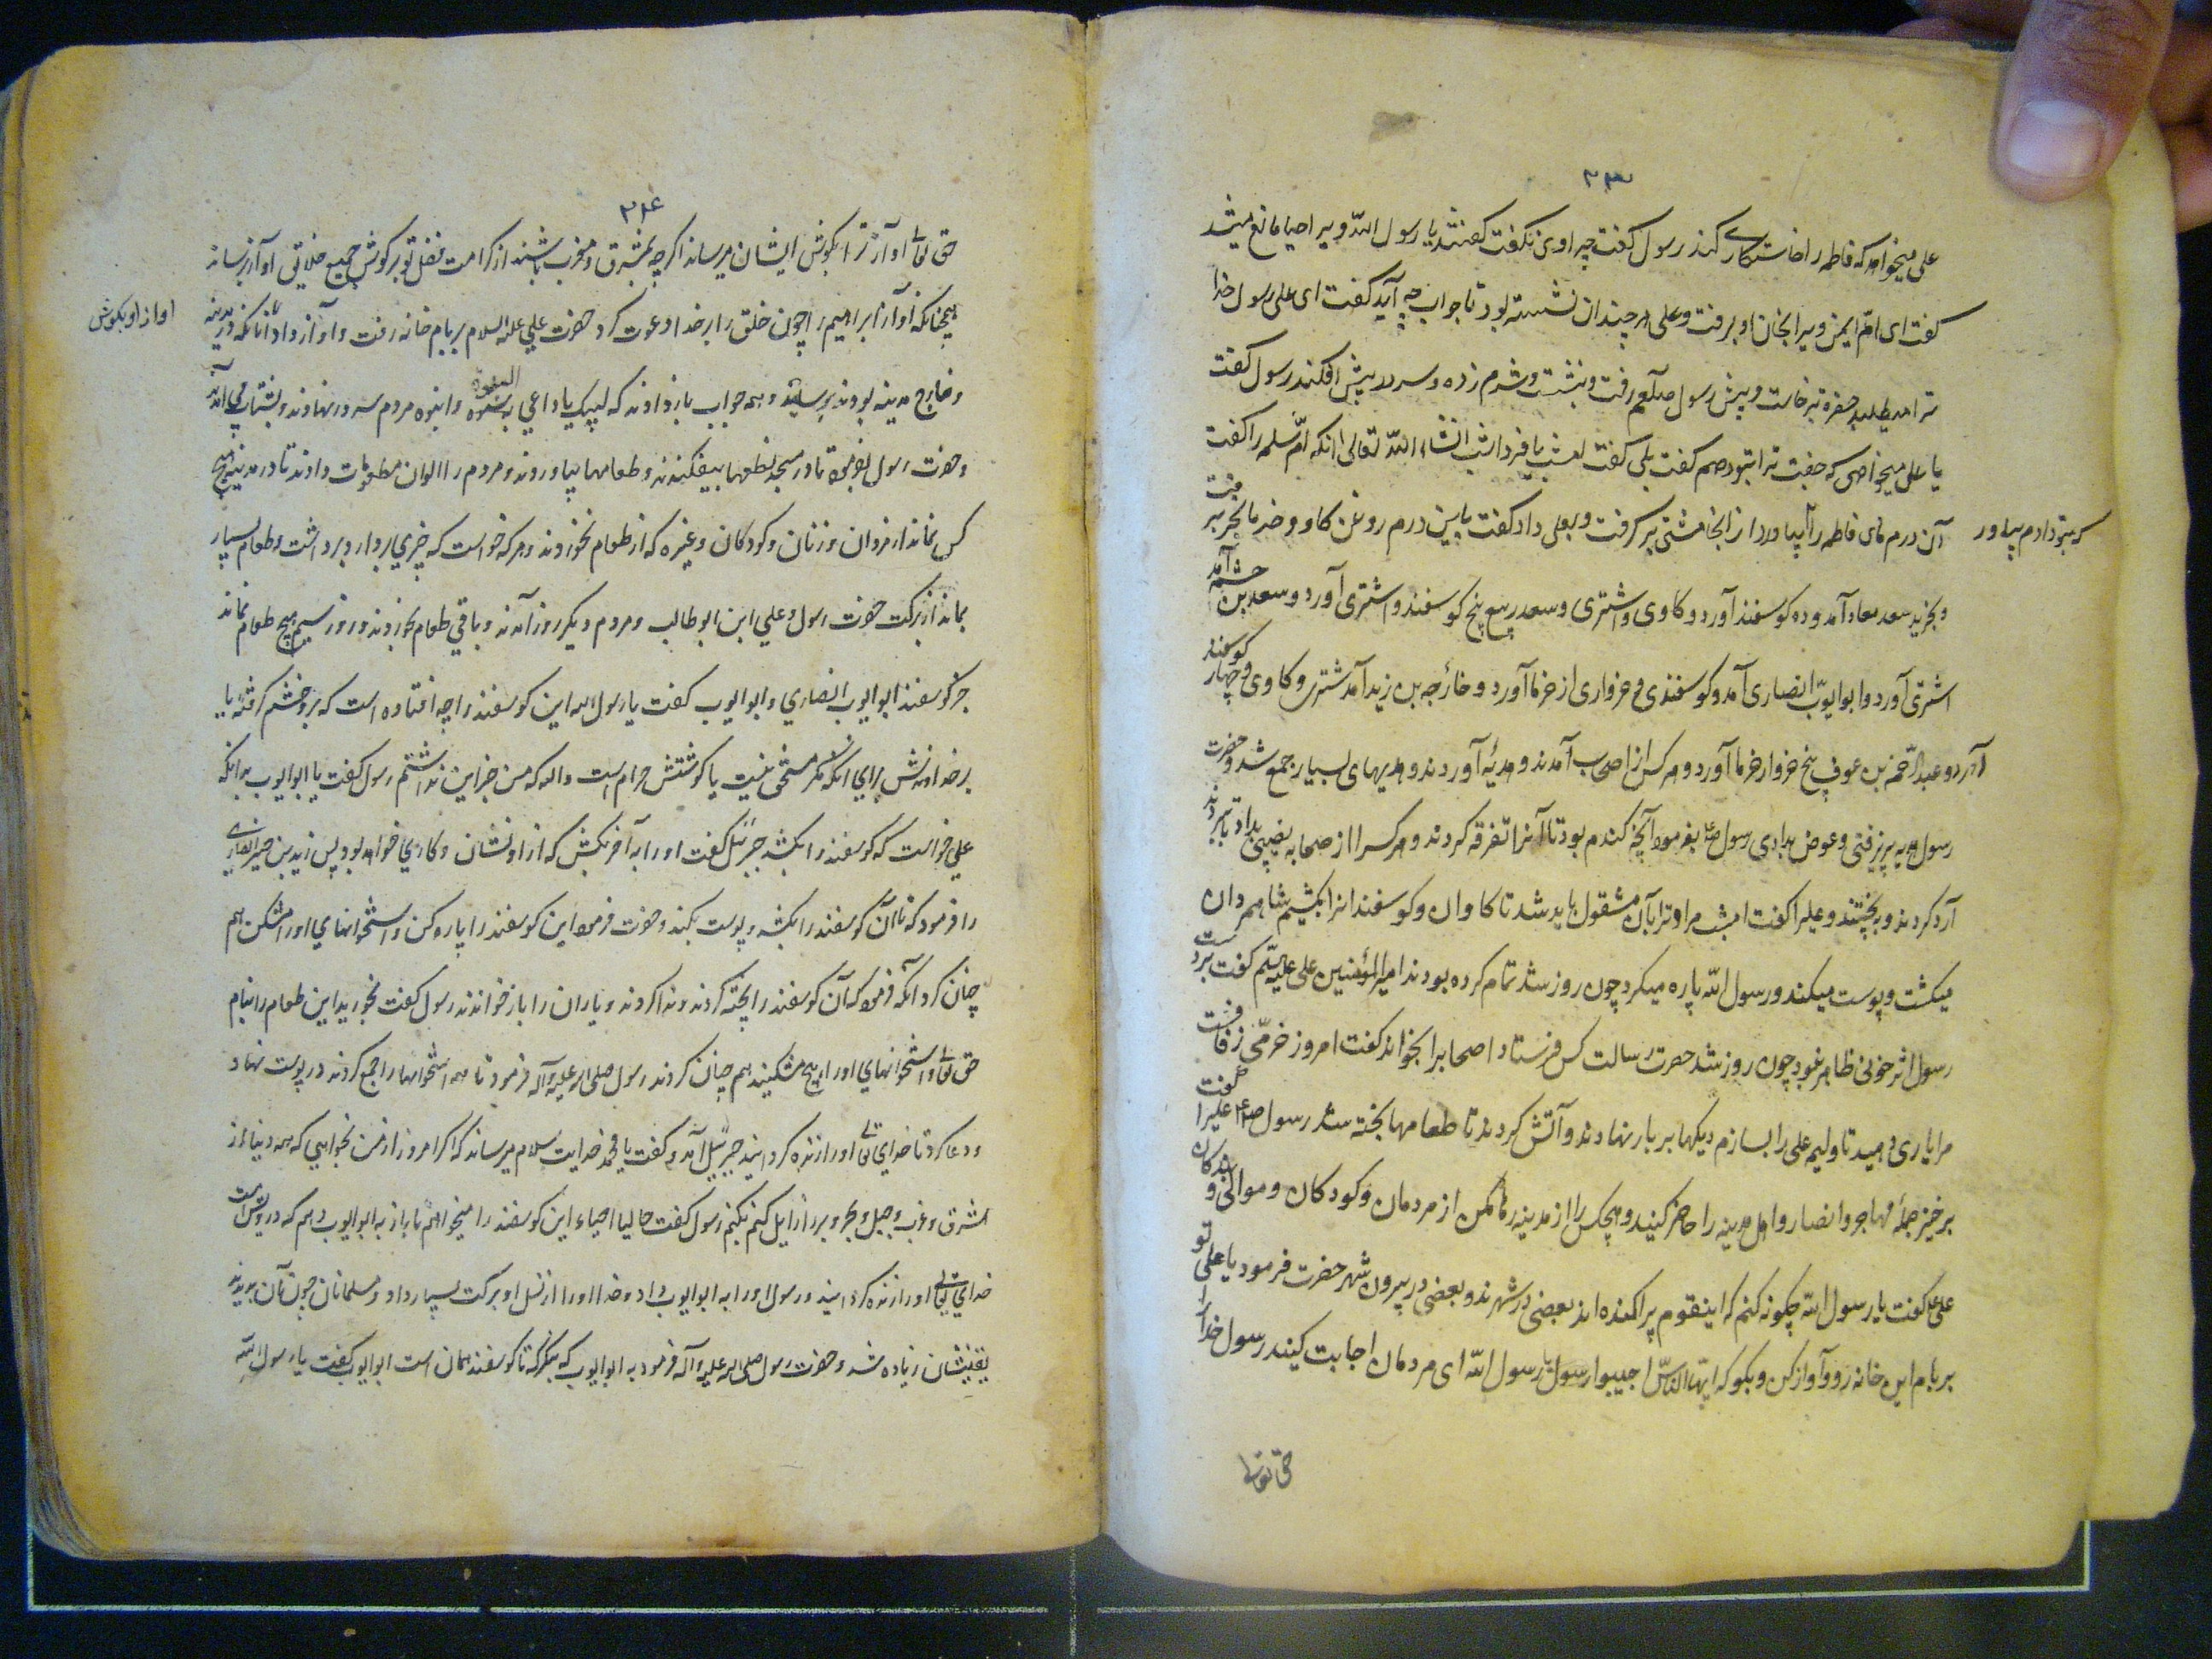 ۲۳۳
علی میخواهد که فاطمه را خاستکاری کند رسول کفت چه اوی نکفت کفتند یا رسول اللّه ویرا حیا مانع میشد
کفت ای امّ ایمن ویرا بخان او برفت و علی هر چندان نشسته بود تا جواب چه آید کفت ای علی رسول خدا
ترا میطلبد حضرة برخاست و پیش رسول صلّعم رفت و بنشت و شرم زده و سر در پیش افکند رسول کفت
یا علی میخواهی که جفت ترا بتو دهم کفت بلی کفت امشب یا فردا شب انشاء اللّه تعالی انکه امّ سلمه را کفت
آن درم های فاطمه را بیاورد از انجا مشتی بر کرفت و بعلی داد کفت باین درم روغن کاو و خرما بخر برفت
که بتو دادم بیاور
و بخرید سعد معاد آمد و ده کوسفند آورد و کاوی و اشتری و سعد ربیع پنج کوسفند و اشتری آورد و سعد بن خثیمه آمد
اشتری آورد و ابو ایوّب انصاری آمد و کوسفندی و خرواری از خرما آورد و خارجه بن زید آمد شتری و کاوی و چهار کوسفند
آورد و عبد الرّحمن بن عوف پنج خروار خرما آورد و هر کس از اصحاب آمدند و هدیهٔ آوردند و هدیهای بسیار جمع شد و حضرت
رسول هدیه پزیرفتی و عوض بدادی رسول ص بفرمود آنچ کندم بود تا آنرا تفرقه کردند و هر کسرا از صحابه نصیبی بداد تا ببردند
آرد کردند و بپختند و علیرا کفت امشب مرا و ترا بآن مشقول باید شد تا کاوان و کوسفندانرا بکشیم شاه مردان
میکشت و پوست میکند و رسول اللّه پاره میکرد چون روز شد تمام کرده بودند امیر المؤمنین علی علیه السّلم کفت بر دست
رسول اثر خونی ظاهر نبود چون روز شد حضرت رسالت کس فرستاد اصحابرا بخواند کفت امروز خرمّی زفاف است
مرا یاری دهید تا ولیمه علی را بسازم دیکها بر بار نهادند و آتش کردند تا طعامها پخته شد رسول ص علیرا کفت
برخیز جملهٔ مهاجر و انصار و اهل مدینه را حاضر کنید و هیچکس را از مدینه رها مکن از مردمان و کودکان و موالی و بندکان
علی ع کفت یا رسول اللّه چکونه کنم که اینقوم پراکنده اند بعضی در شهرند و بعضی در بیرون شهر حضرت فرمود یا علی تو
بر بام این خانه رو و آواز کن و بکو که ایّها النّاس اجیبوا رسول یا رسول اللّه ای مردمان اجابت کنید رسول خدا را
حق تعالی
۲۳۴
حق تعالی آواز ترا بکوش ایشان میرساند اکر چه بمشرق و مغرب باشند از کرامت فضل تو بر کوش جمیع خلایق آواز برساند
همچنانکه آواز ابراهیم را چون خلق را بر خدا دعوت کرد حضرت علی علیه السلام بر بام خانه رفت و آواز داد تا آنانکه در مدینه
اواز او بکوش
و خارج مدینه بودند برسانید و همه جواب باز دادند که لبیک یا داعی الله و انبوه مردم سر در نهادند و بشتاب می آمدند
و حضرت رسول بفرمود تا در مسجد نطعها بیفکندند و طعامها بیاوردند و مردم را الوان مطعومات دادند تا در مدینه هیچ
کس نماند از مردان و زنان و کودکان و غیره که از طعام نخوردند و هر که خواست که چیزی بردارد برداشت و طعام بسیار
بماند از برکت حضرت رسول و علی ابن ابو طالب و مردم دیکر روز آمدند و باقی طعام بخوردند و روز سیم هیچ طعام نماند
جز کوسفند ابو ایوب انصاری و ابو ایوب کفت یا رسول الله این کوسفند را چه افتاده است که بر وخشم کرفتهٔ یا
بر خداوندش برای انکه مکر مستحق نیست یا کوشتش حرام است والله که من جز این نداشتم رسول کفت یا ابو ایوب بدانکه
علی خواست که کوسفند را بکشد جبرئیل کفت او را به آخر بکش که از او نشان و کاری خواهد بود پس زید بن جبیر انصاری
را فرمود که تا آن کوسفند را بکشد و پوست بکند و حضرت فرمود این کوسفند را پاره کن و استخوانهای او را مشکن هم
چنان کرد آنکه فرمود که آن کوسفند را پخته کردند و ندا کردند و یاران را باز خواندند رسول کفت بخورید این طعام را بنام
حق تعالی و استخوانهای او را هیچ مشکنید هم چنان کردند رسول صلی الله علیه و آله فرمود تا همه استخوانها را جمع کردند در پوست نهاد
و دعا کرد تا خدای تعالی او را زنده کردانید جبرئیل آمد و کفت یا محمد خدایت سلام میرساند که اکر امروز از من بخواهی که همه دنیا را از
مشرق و غرب و جبل و بحر و بر زایل کنم بکنم رسول کفت حالیا احیاء این کوسفند را میخواهم تا باز به ابو ایوب دهم که درویش است
خدای تعالی او را زنده کردانید و رسول او را به ابو ایوب داد و خدا او را از نسل او برکت بسیار داد و مسلمانان چون آن بدیدند
یقینشان زیاده شد و حضرت رسول صلی الله علیه و آله فرمود به ابو ایوب که بنکر که تا کوسفند همان است ابو ایوب کفت یا رسول اللّه